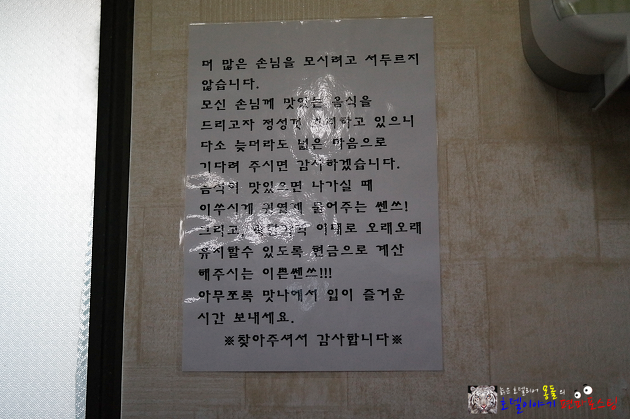 더 많은 손님을 모시려고 서두르지
않습니다.
모신 손님께 맛있는 음식을
드리고자 정성껏 하고 있으니
다소 늦더라도 넓은 마음으로
기다려 주시면 감사하겠습니다.
음식이 맛있으면 나가실 때
이쑤시게 귀엽게 물어주는 쎈쓰!
그리고, 이대로 오래오래
유지할수 있도록 현금으로 계산
해주시는 이쁜쎈쓰!!!
아무쪼록 맛나에서 입이 즐거운
시간 보내세요.
※찾아주셔서 감사합니다※